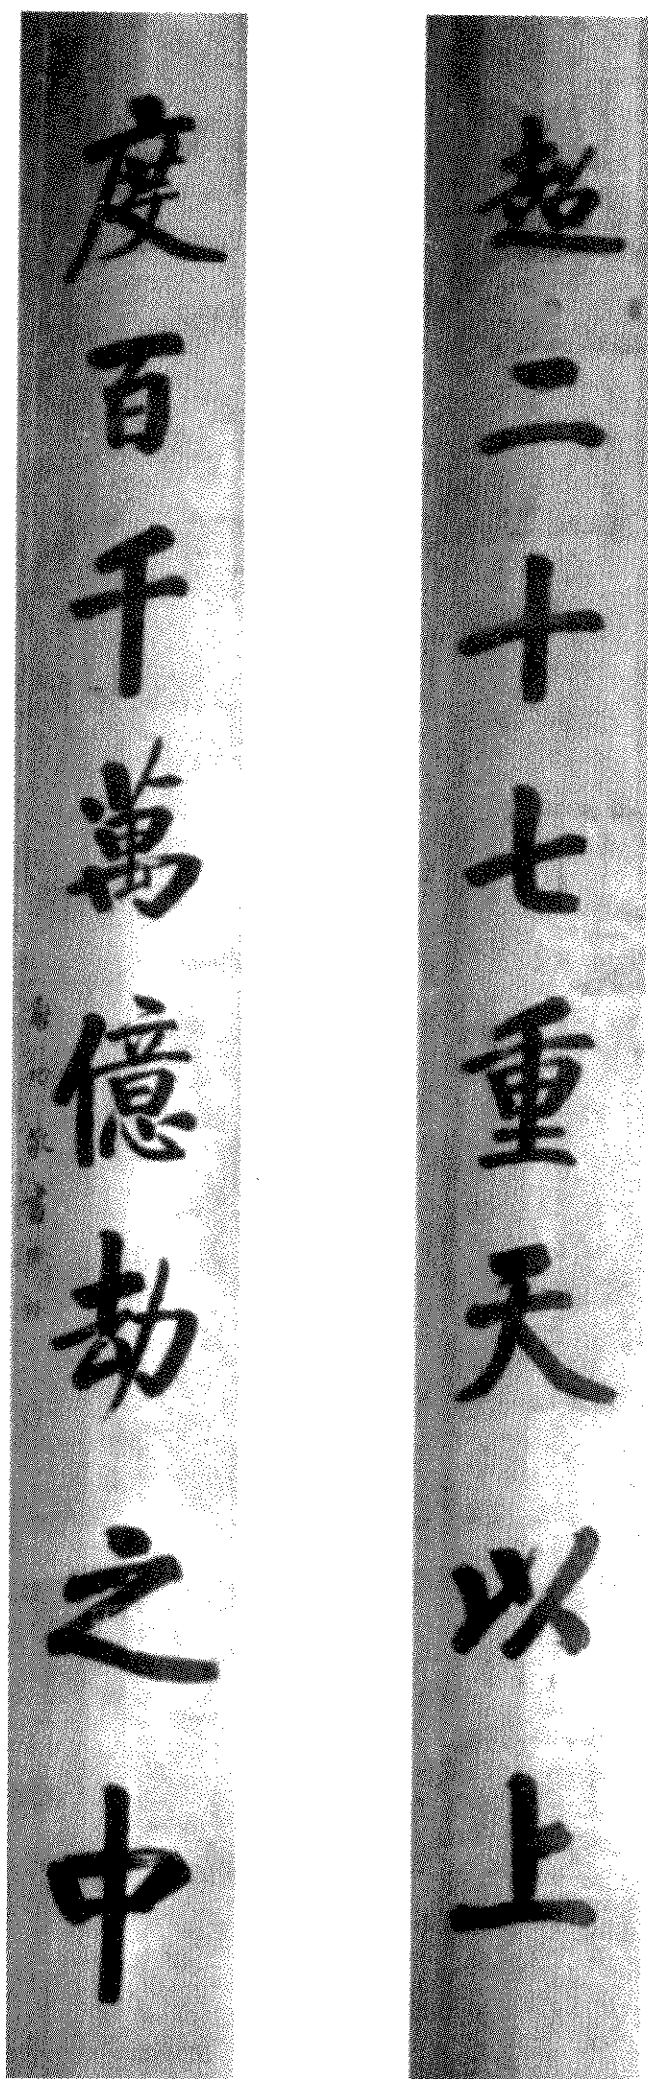 超二十七重天以上
度百千萬億劫之中